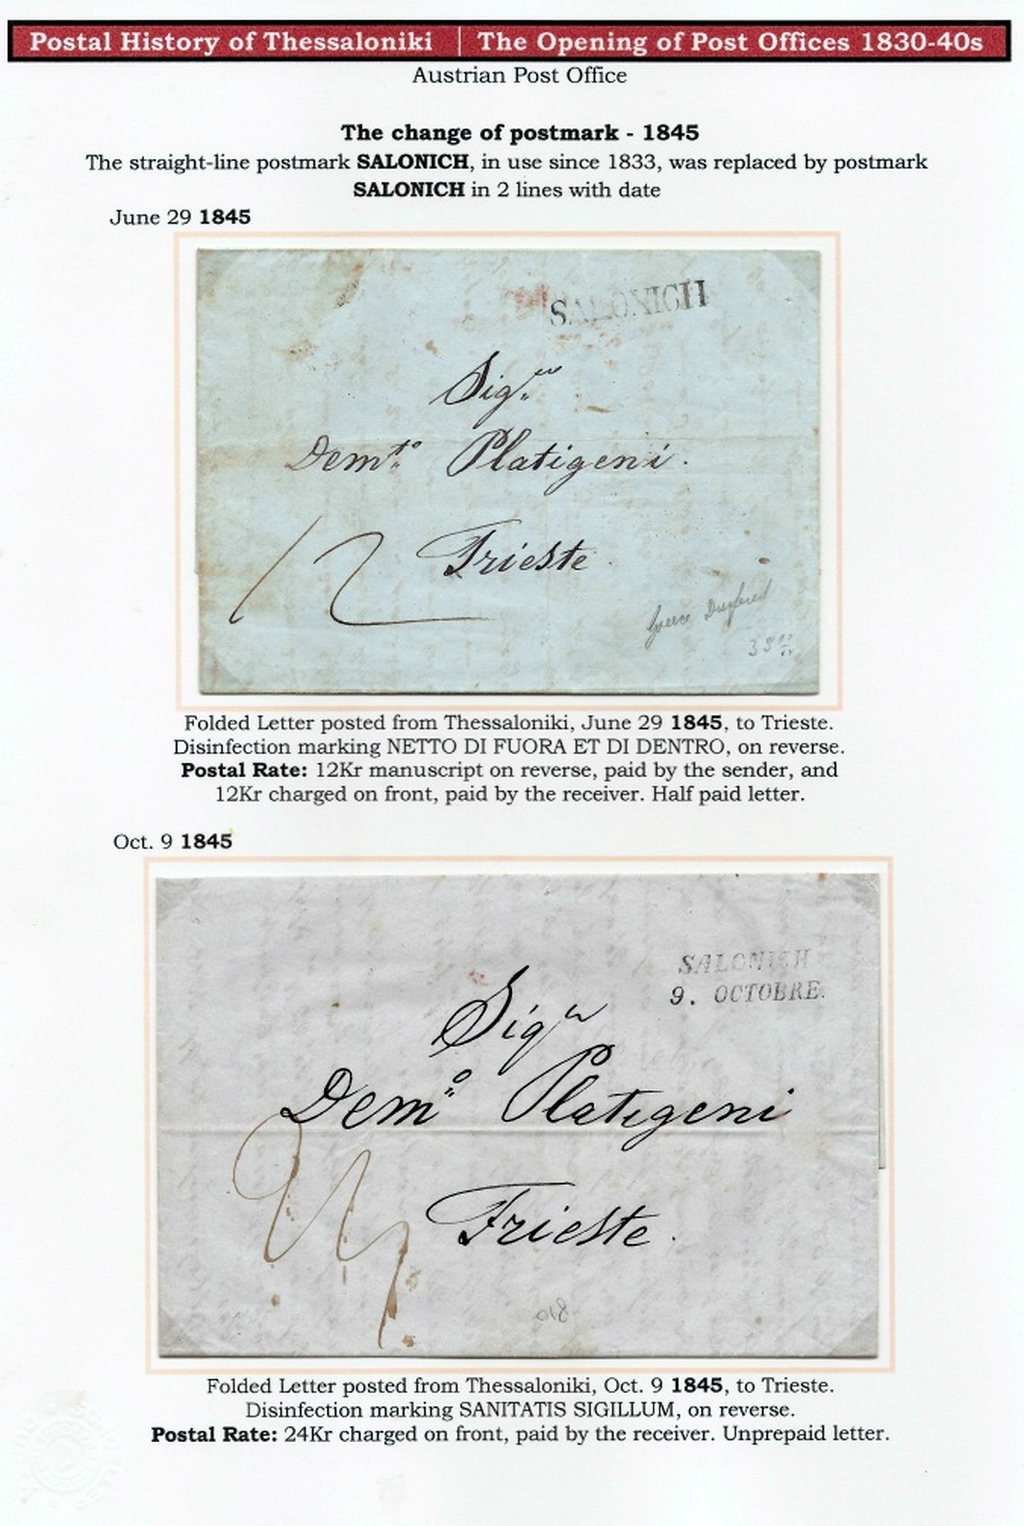 Postal History of Thessaloniki | The Opening of Post Offices 1830-40s
Austrian Post Office
The change of postmark - 1845
The straight-line postmark SALONICH, in use since 1833, was replaced by postmark
SALONICH in 2 lines with date
June 29 1845
SALONICH
Sig.re
Dem.to Platigeni.
Trieste.
12
Greece
Folded Letter posted from Thessaloniki, June 29 1845, to Trieste.
Disinfection marking NETTO DI FUORA ET DI DENTRO, on reverse.
Postal Rate: 12Kr manuscript on reverse, paid by the sender, and
12Kr charged on front, paid by the receiver. Half paid letter.
Oct. 9 1845
SALONICH
9. OCTOBRE.
Sigr
Demo Platigeni
Trieste.
24
Folded Letter posted from Thessaloniki, Oct. 9 1845, to Trieste.
Disinfection marking SANITATIS SIGILLUM, on reverse.
Postal Rate: 24Kr charged on front, paid by the receiver. Unprepaid letter.